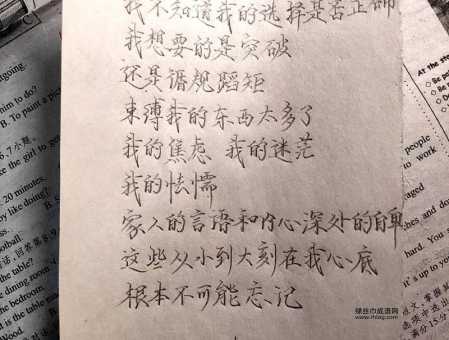 我不知道我的选择是否正确
我想要的是突破
还是循规蹈矩
束缚我的东西太多了
我的焦虑 我的迷茫
我的怯懦
家人的言语和内心深处的自卑
这些从小到大刻在我心底
根本不可能忘记
him to do?
B. To paint a pic
6,7小题。
the girl to get
20 minutes.
by like doing?
ootball.
the table?
dining room
the bedroom.
is the table
At the
people
to work
hard. You s
it's up to you
满分15分
绿丝巾成语网
www.lhisjg.com